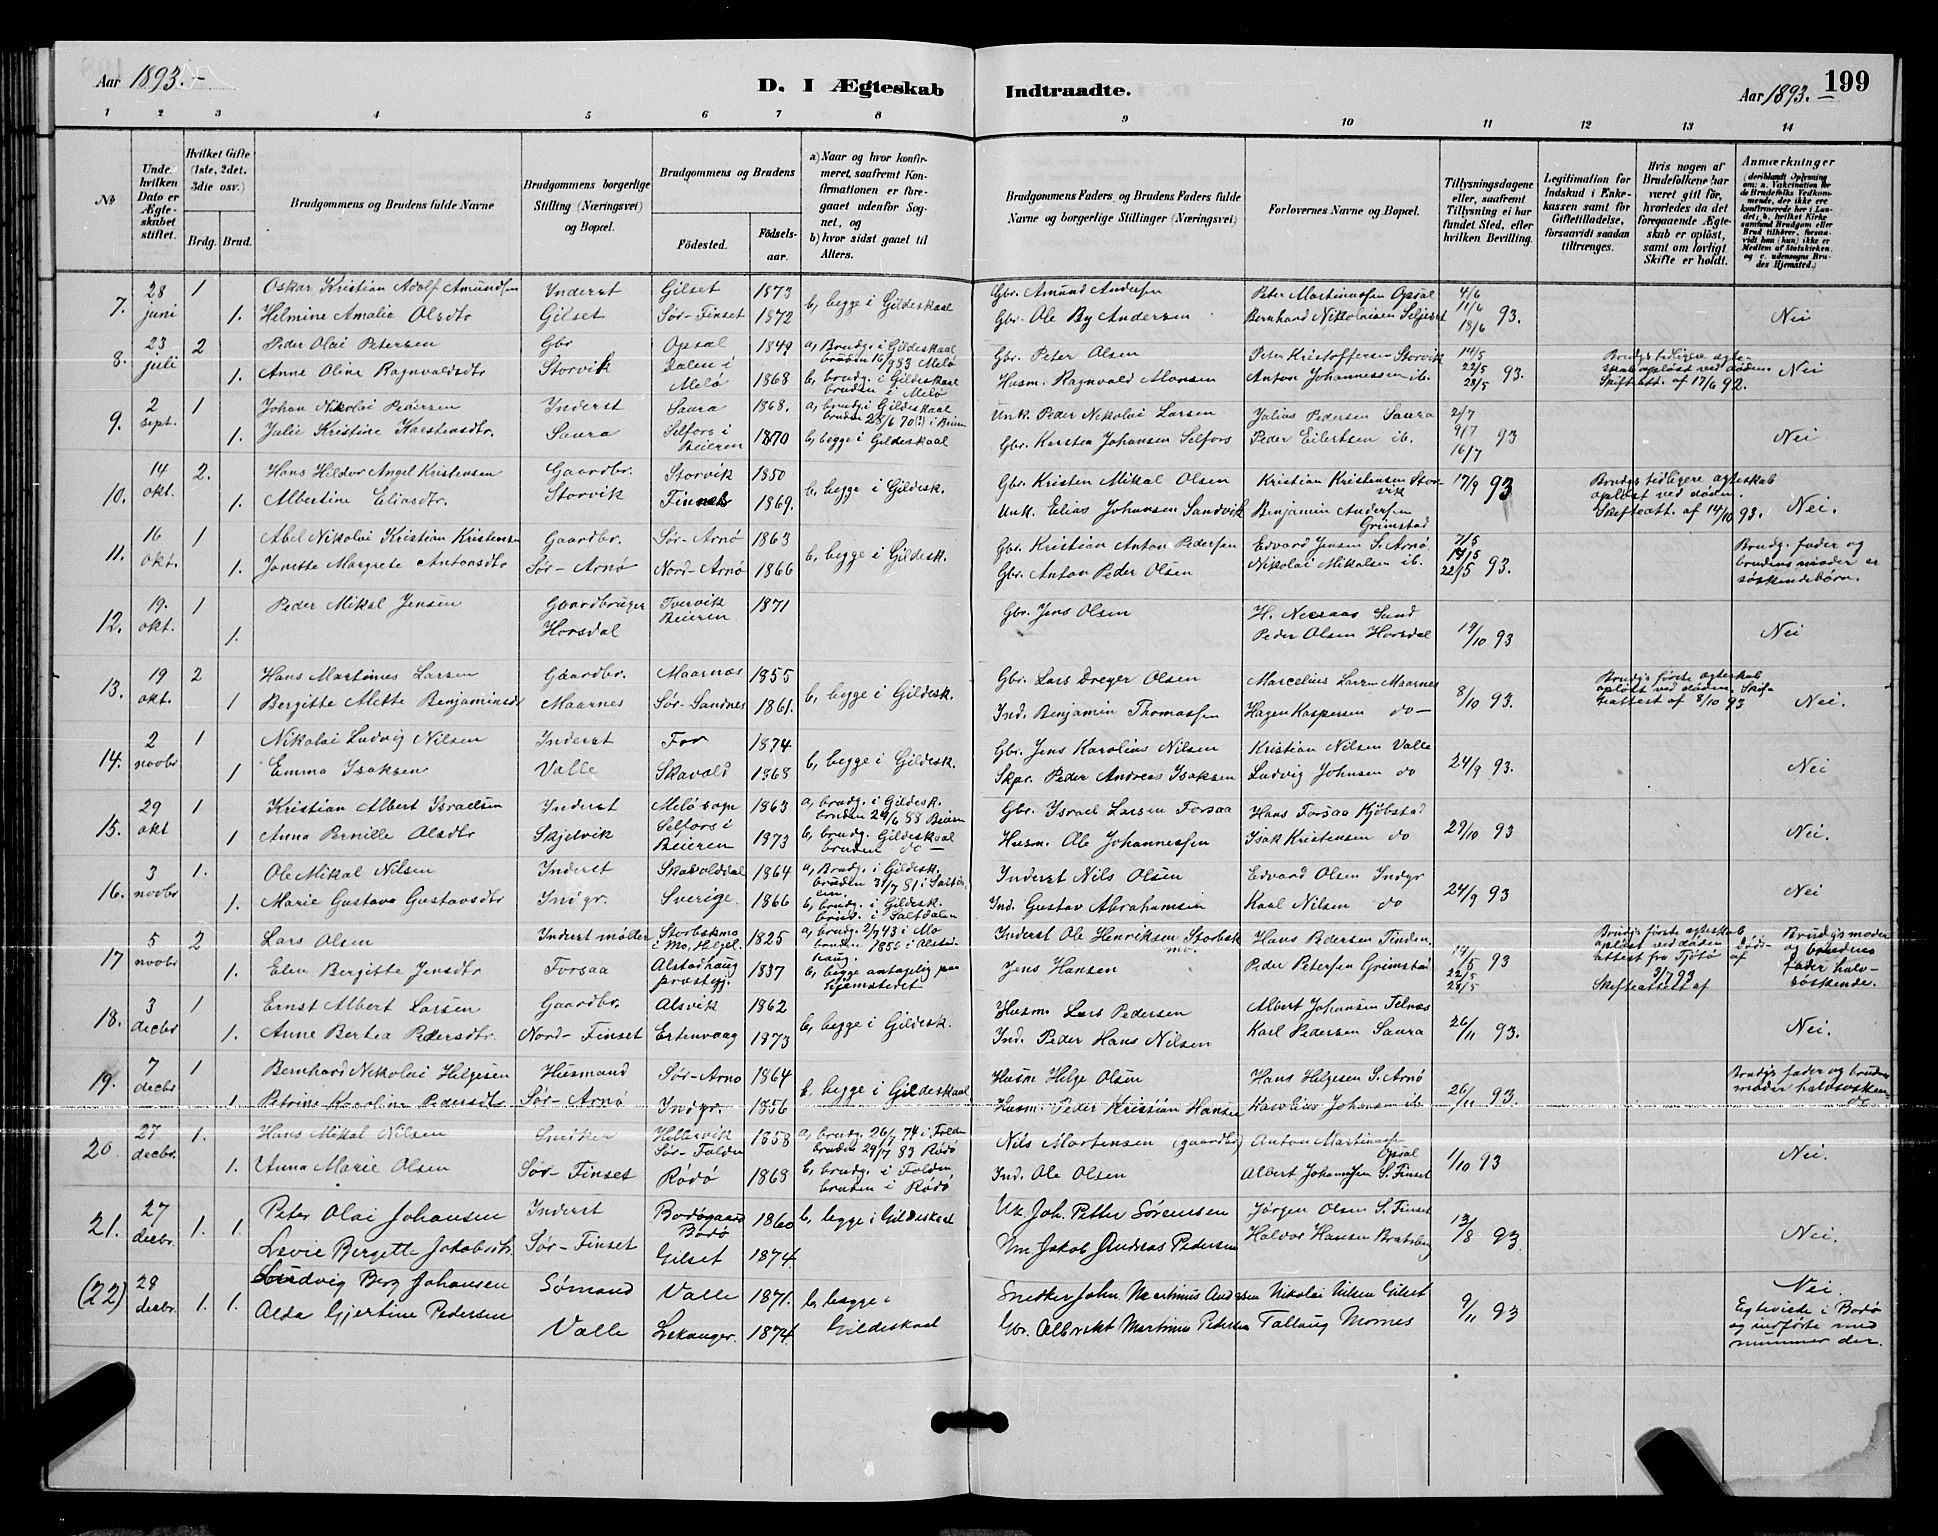 Aar 1893.-
D. I Ægteskab Indtraadte.
Aar 1893.-
199
1 2 3 4 5 6 7 8 9 10 11 12 13 14
№
Under hvilken Dato er Ægteskabet stiftet.
Hvilket Gifte (1ste, 2det, 3die osv.)
Brdg. Brud.
Brudgommens og Brudens fulde Navne
Brudgommens borgerlige Stilling (Næringsvei) og Bopæl.
Brudgommens og Brudens
Fødested. Fødselsaar.
a) Naar og hvor konfirmeret, saafremt Konfirmationen er foregaaet udenfor Sognet, og
b) hvor sidst gaaet til Alters.
Brudgommens Faders og Brudens Faders fulde Navne og borgerlige Stillinger (Næringsvei)
Forlovernes Navne og Bopæl.
Tillysningsdagene eller, saafremt Tillysning ei har fundet Sted, efter hvilken Bevilling.
Legitimation for Indskud i Enkekassen samt for Giftetilladelse, forsaavidt saadan tiltrænges.
Hvis nogen af Brudefolkene har været gift før, hvorledes da det foregaaende Ægteskab er opløst, samt om lovligt Skifte er holdt.
Anmærkninger (deriblandt Oplysning om: a. Vakcination for de Brudefolks Vedkommende, der ikke ere konfirmerede her i Landet; b. hvilket Kirkesamfund Brudgom eller Brud tilhører, forsaavidt han (hun) ikke er Medlem af Statskirken, og c. udensogns Brudes Hjemsted.)
7. 28 juni 1 Oskar Kristian Adolf Amundsen Inderst Gilset 1873 b, begge i Gildeskaal Gbr. Amund Andersen Peter Martinussen Opsal 4/6
1. Helmine Amalie Olsdtr Gilset Sør-Finset 1872 Gbr. Ole By Andersen Bernhard Nikolaisen Seljeset 11/6 18/6 93. Nei
8. 23 juli 2 Peder Olai Petersen Gbr Opsal 1849 a, Brudg. i Gildeskaal bruden 16/9 83 Melø Gbr. Peter Olsen Peter Kristoffersen Storvik 14/5 Brudgs tidligere ægteskab opløst ved døden.
1. Anne Oline Ragnvaldsdtr Storvik Dalen i Melø 1868 b, brudg. i Gildeskaal bruden i Melø Husm. Ragnvald Monsen Anton Johannessen ib. 22/5 28/5 93. Skifteatt. af 17/6 92. Nei
9. 2 sept. 1 Johan Nikolai Pedersen Inderst Saura 1868. a, brudg. i Gildeskaal bruden 28/6 70(!) i Beiern Unk. Peder Nikolai Larsen Julius Pedersen Saura 2/7
1. Julie Kristine Karstensdtr. Saura Selfors i Beieren 1870 b, begge i Gildeskaal Gbr. Karsten Johansen Selfors Peder Eilertsen ib. 9/7 16/7 93 Nei
10. 14 okt. 2. Hans Hildor Angel Kristensen Gaardbr. Storvik 1850 b, begge i Gildesk. Gbr. Kristen Mikal Olsen Kristian Kristensen Storvik 17/9 93 Brudgs tidligere ægteskab opløst ved døden.
1. Albertine Eliasdtr. Storvik Finnes 1869. Unk. Elias Johansen Sandvik Benjamin Andersen Grimstad Skifteatt. af 14/10 93. Nei.
11. 16 okt. 1 Abel Nikolai Kristian Kristensen Gaardbr. Sør-Arnø 1863 b, begge i Gildesk. Gbr. Kristian Anton Pedersen Edvard Jensen S. Arnø. 7/5 Brudg. fader og
1. Janette Margrete Antonsdtr Sør-Arnø Nord-Arnø 1866 Gbr. Anton Peder Olsen Nikolai Mikalsen ib. 14/5 22/5 93. brudens moder er søskendebørn.
12. 19. okt. 1 Peder Mikal Jensen Gaardbruger Tvervik Beieren 1871 Gbr. Jens Olsen H. Neeraas Sund
1. Horsdal Peder Olsen Horsdal 19/10 93 Nei
13. 19 okt. 2 Hans Martinus Larsen Gaardbr. Maarnæs 1855 b, begge i Gildesk. Gbr. Lars Dreyer Olsen Marcelius Larsen Maarnes 8/10 93. Brudgs første ægteskab opløst ved døden. Skifteattest af 8/10 93
1 Bergitte Alette Benjaminsdtr Maarnes Sør-Sandnes 1861. Ind. Benjamin Thomassen Hagen Kaspersen do- Nei.
14. 2 novbr 1 Nikolai Ludvig Nilsen Inderst For 1874 b, begge i Gildesk. Gbr. Jens Karolius Nilsen Kristian Nilsen Valle 24/9 93.
1 Emma Isaksen Valle Skavold 1868 Skpr. Peder Andreas Isaksen Ludvig Johnsen do Nei
15. 29 okt 1 Kristian Albert Israelsen Inderst Melø sogn 1863 a, brudg. i Gildesk. bruden 24/6 88 Beiern Gbr. Israel Larsen Forsaa Hans Forsaa Kjøbstad
1 Anna Pernille Olsdtr Skjelvik Selfors i Beieren 1873 b, brudg. Gildeskaal bruden do- Husm. Ole Johannessen Isak Kristensen do 29/10 93 Nei.
16. 3 novbr 1. Ole Mikal Nilsen Inderst Skavolddal 1864 a, Brudg. i Gildesk. bruden 31/7 81 i Saltdalen. Inderst Nils Olsen Edvard Olsen Indgr
1. Marie Gustava Gustavsdtr Indgr. Sverige. 1866 b, brudg. i Gildesk. brud. i Saltdalen Ind. Gustav Abrahamsen Kaal Nilsen do 24/9 93 Nei
17 5 novbr 2 Lars Olsen Inderst møller Storbskmo i Mo, Helgel. 1825 a, brudg. 2/7 43 i Mo bruden 1850 i Alstadhaug. Inderst Ole Henriksen Storbskmo. Hans Pedersen Finden. 14/5 Brudgs første ægteskab opløst ved døden Dødsattest fra Tjøtø af Brudgs moder og brudens
1. Elen Bergitte Jensdtr Forsaa Alstadhaug præstegj. 1837 b, begge antagelig paa hjemstedet Jens Hansen Peder Petersen Grimstad 22/5 28/5 93 3/7 93 Skifteattest af fader halvsøskende.
18. 3 decbr 1 Ernst Albert Larsen Gaardbr. Alsvik 1862 b, begge i Gildesk. Husm. Lars Pedersen Albert Johansen Telnæs
1. Anne Bertea Pedersdtr. Nord-Finset Ertenvaag 1873 Ind. Peder Hans Nilsen Karl Pedersen Saura 26/11 93. Nei.
19. 7 decbr 1 Bernhard Nikolai Helgesen Husmand Sør-Arnø 1864 b. begge i Gildeskaal Husm Helge Olsen Hans Helgesen S. Arnø Brudgs fader og brudens
1 Petrine Karoline Pedersdtr Sør-Arnø Indgr. 1856 Husm. Peder Kristian Hansen Karolius Johansen ib. 26/11 93. moder halvsøskende
20. 27 decbr. 1. Hans Mikal Nilsen Snekker Hellervik Sør-Folden 1858 a, brudg. 26/7 74 i Folden bruden 29/7 83 Rødø Nils Mortensen (gaardbr.) Anton Martinussen Opsal
1. Anna Marie Olsen Sør-Finset Rødø 1868 b, brudg. i Folden, bruden i Rødø Ind. Ole Olsen Albert Johansen S. Finset 1/10 93 Nei.
21. 27 decbr. 1. 1. Peter Olai Johansen Inderst Bodøgaard Bodø 1860 b, begge i Gildeskaal Uk. Joh. Petter Sørensen Jørgen Olsen S. Finset
Levie Bergette Jakobsdtr. Sør-Finset Gilset 1874. Um. Jakob Andreas Pedersen Haldor Hansen Bratsberg 13/8 93. Nei.
(22) 28 decbr. 1. 1. Ludvig Berg Johansen Sømand Valle 1871. b, begge i Snekker John Martinus Andersen Nikolai Nilsen Gilset Nei.
Alda Gjertine Pedersen Valle Lekanger. 1874. Gildeskaal Gbr. Albrekt Martinus Pedersen Tallaug Mornes 9/11 93 Egteviede i Bodø
og indførte med
nummer der.